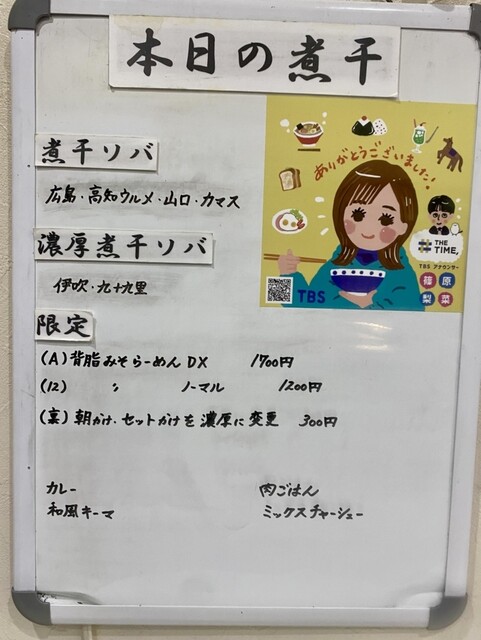 本日の煮干
煮干ソバ
広島・高知ウルメ・山口・カマス
濃厚煮干ソバ
伊吹・九十九里
限定
(A) 背脂みそらーめん DX 1700円
(12) 〃 ノーマル 1200円
(裏) 朝かけ・セットかけを濃厚に変更 300円
カレー 肉ごはん
和風キーマ ミックスチャーシュー
ありがとうございました!
THE TIME,
TBS アナウンサー
篠原
梨菜
TBS